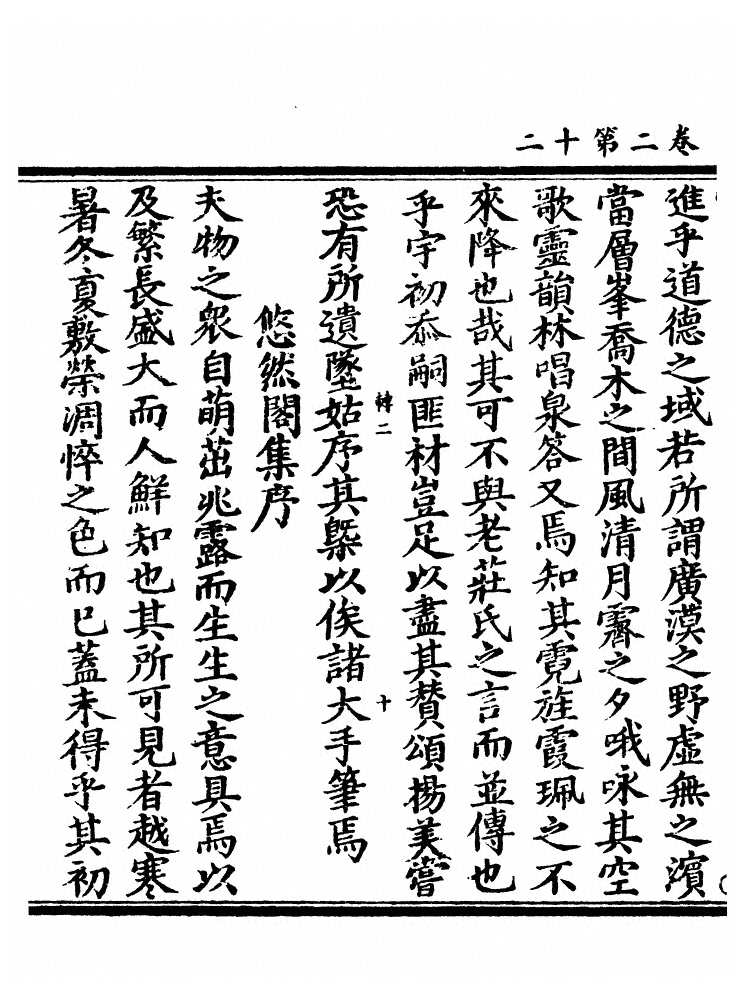 卷二第十二
進乎道德之域若所謂廣漠之野虛無之濱
當層峯喬木之間風清月霽之夕哦咏其空
歌靈韻林唱泉答又焉知其霓旌霞珮之不
來降也哉其可不與老莊氏之言而並傳也
乎宇初忝嗣匪材豈足以盡其賛頌揚美嘗
恐有所遺墜姑序其槩以俟諸大手筆焉
轉二
十
悠然閣集序
夫物之衆自萌茁兆露而生生之意具焉以
及繁長盛大而人鮮知也其所可見者越寒
暑冬夏敷榮凋悴之色而已蓋未得乎其初